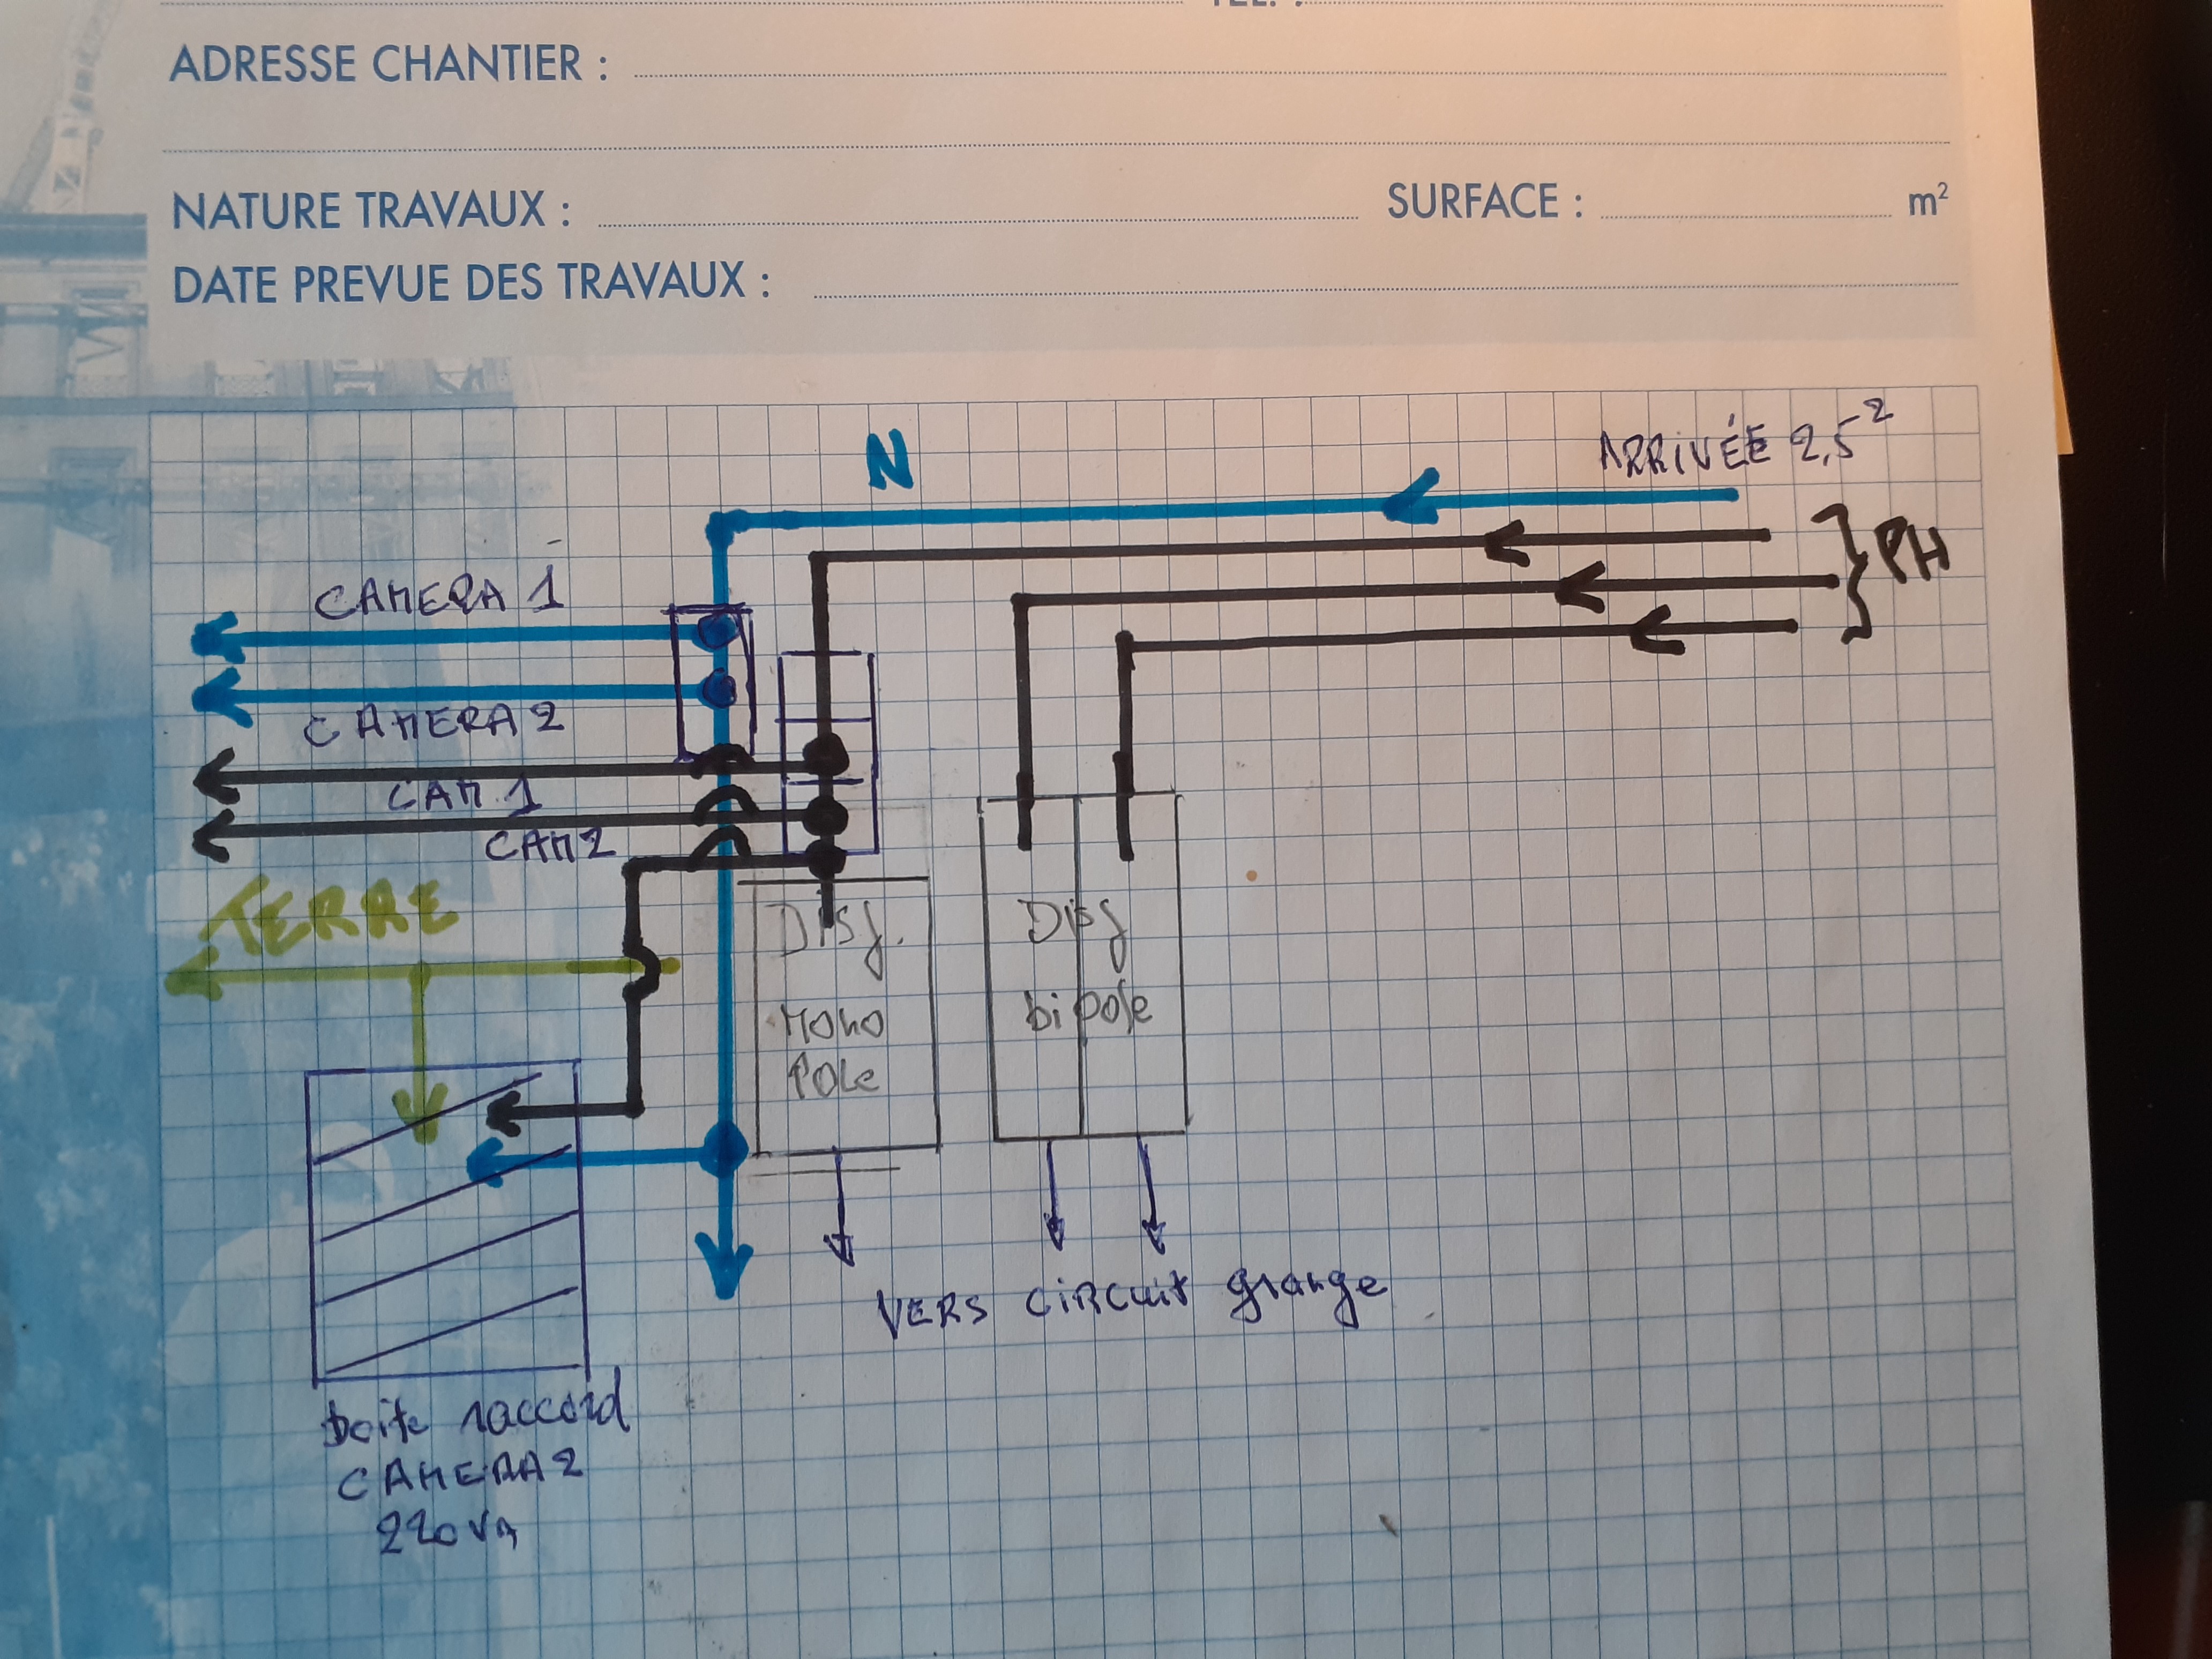 ADRESSE CHANTIER :
NATURE TRAVAUX : SURFACE : m²
DATE PREVUE DES TRAVAUX :
N
ARRIVÉE 2,5²
PH
CAMERA 1
CAMERA 2
CAM 1
CAM 2
TERRE
DISJ.
MONO
POLE
DISJ
bipole
VERS CIRCUIT grange
boite raccord
CAMERA 2
220